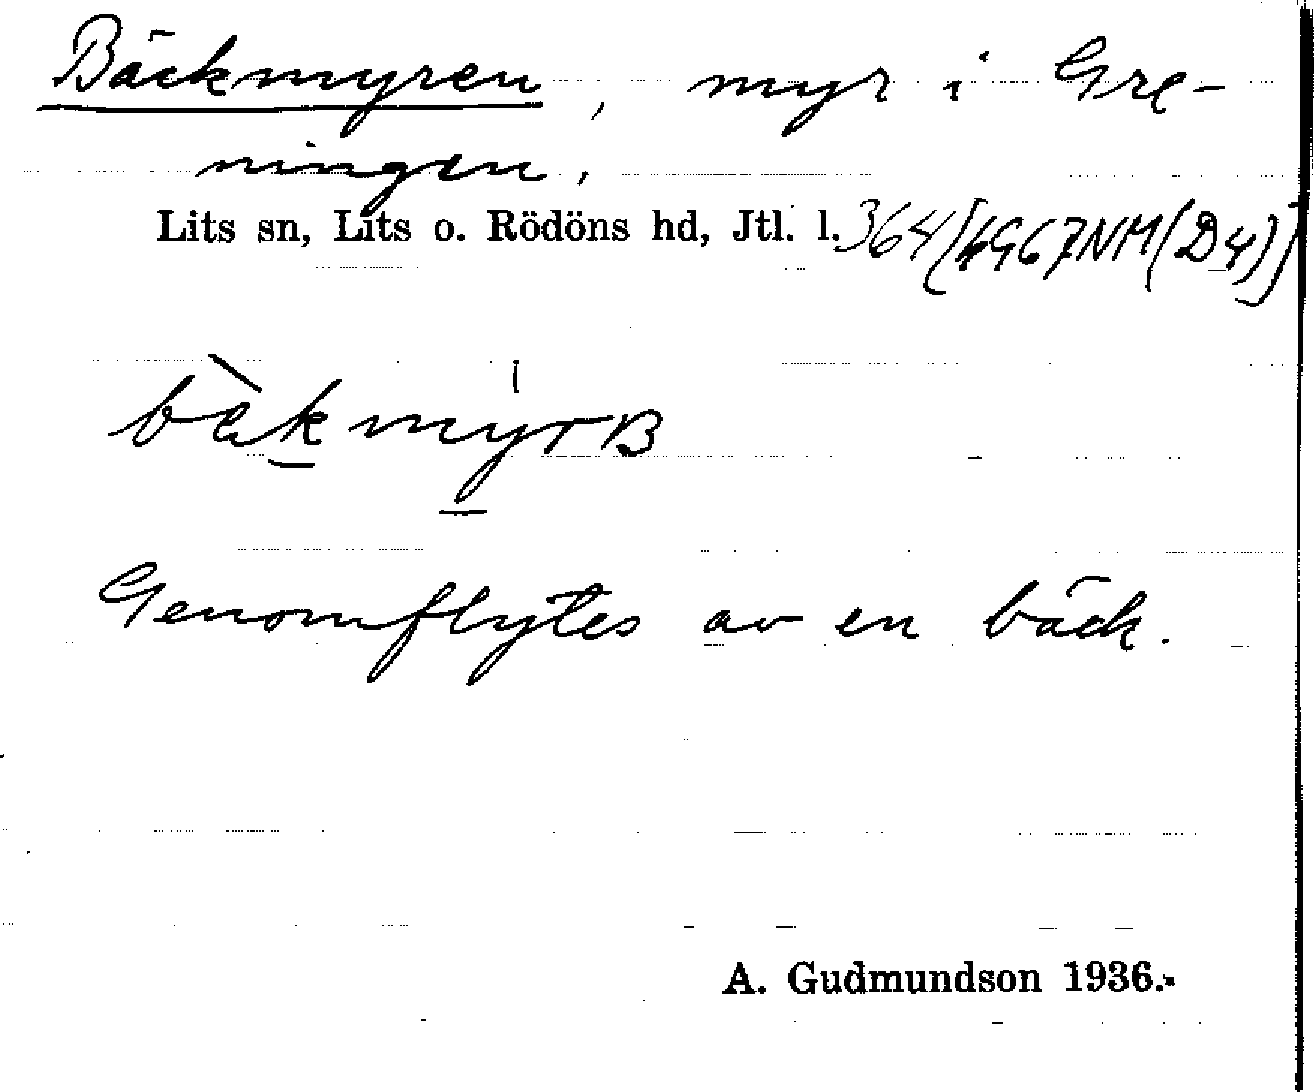 Bäckmyren, myr i Gre-
ningen.
Lits sn, Lits o. Rödöns hd, Jtl. l. 364 [4967NM(D4)]
Genomflytes av en bäck.
A. Gudmundson 1936.